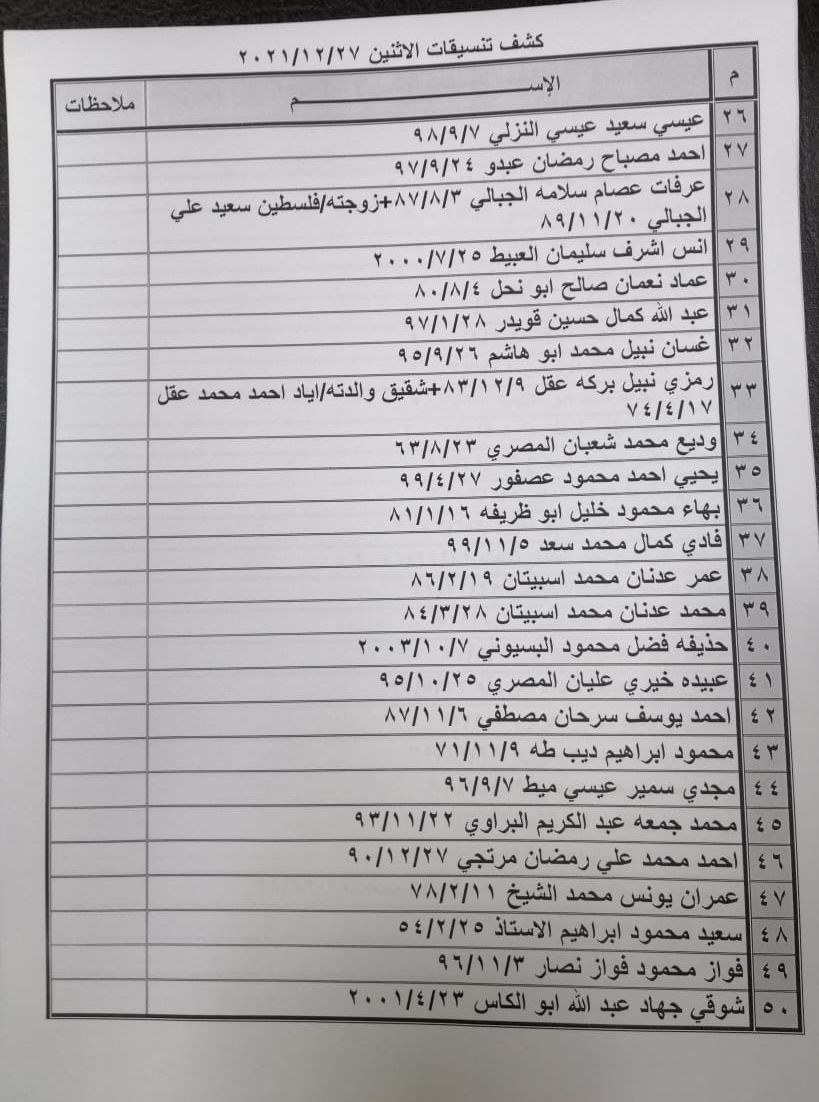 كشف تنسيقات الاثنين ٢٠٢١/١٢/٢٧
م الإســـــــــــــــــــــم ملاحظات
٢٦ عيسي سعيد عيسي النزلي ٩٨/٩/٧
٢٧ احمد مصباح رمضان عبدو ٩٧/٩/٢٤
٢٨ عرفات عصام سلامه الجبالي ٨٧/٨/٣+زوجته/فلسطين سعيد علي
الجبالي ٨٩/١١/٢٠
٢٩ انس اشرف سليمان العبيط ٢٠٠٠/٧/٢٥
٣٠ عماد نعمان صالح ابو نحل ٨٠/٨/٤
٣١ عبد الله كمال حسين قويدر ٩٧/١/٢٨
٣٢ غسان نبيل محمد ابو هاشم ٩٥/٩/٢٦
٣٣ رمزي نبيل بركه عقل ٨٣/١٢/٩+شقيق والدته/اياد احمد محمد عقل
٧٤/٤/١٧
٣٤ وديع محمد شعبان المصري ٦٣/٨/٢٣
٣٥ يحيي احمد محمود عصفور ٩٩/٤/٢٧
٣٦ بهاء محمود خليل ابو ظريفه ٨١/١/١٦
٣٧ فادي كمال محمد سعد ٩٩/١١/٥
٣٨ عمر عدنان محمد اسبيتان ٨٦/٢/١٩
٣٩ محمد عدنان محمد اسبيتان ٨٤/٣/٢٨
٤٠ حذيفه فضل محمود البسيوني ٢٠٠٣/١٠/٧
٤١ عبيده خيري عليان المصري ٩٥/١٠/٢٥
٤٢ احمد يوسف سرحان مصطفي ٨٧/١١/٦
٤٣ محمود ابراهيم ديب طه ٧١/١١/٩
٤٤ مجدي سمير عيسي ميط ٩٦/٩/٧
٤٥ محمد جمعه عبد الكريم البراوي ٩٣/١١/٢٢
٤٦ احمد محمد علي رمضان مرتجي ٩٠/١٢/٢٧
٤٧ عمران يونس محمد الشيخ ٧٨/٢/١١
٤٨ سعيد محمود ابراهيم الاستاذ ٥٤/٢/٢٥
٤٩ فواز محمود فواز نصار ٩٦/١١/٣
٥٠ شوقي جهاد عبد الله ابو الكاس ٢٠٠١/٤/٢٣